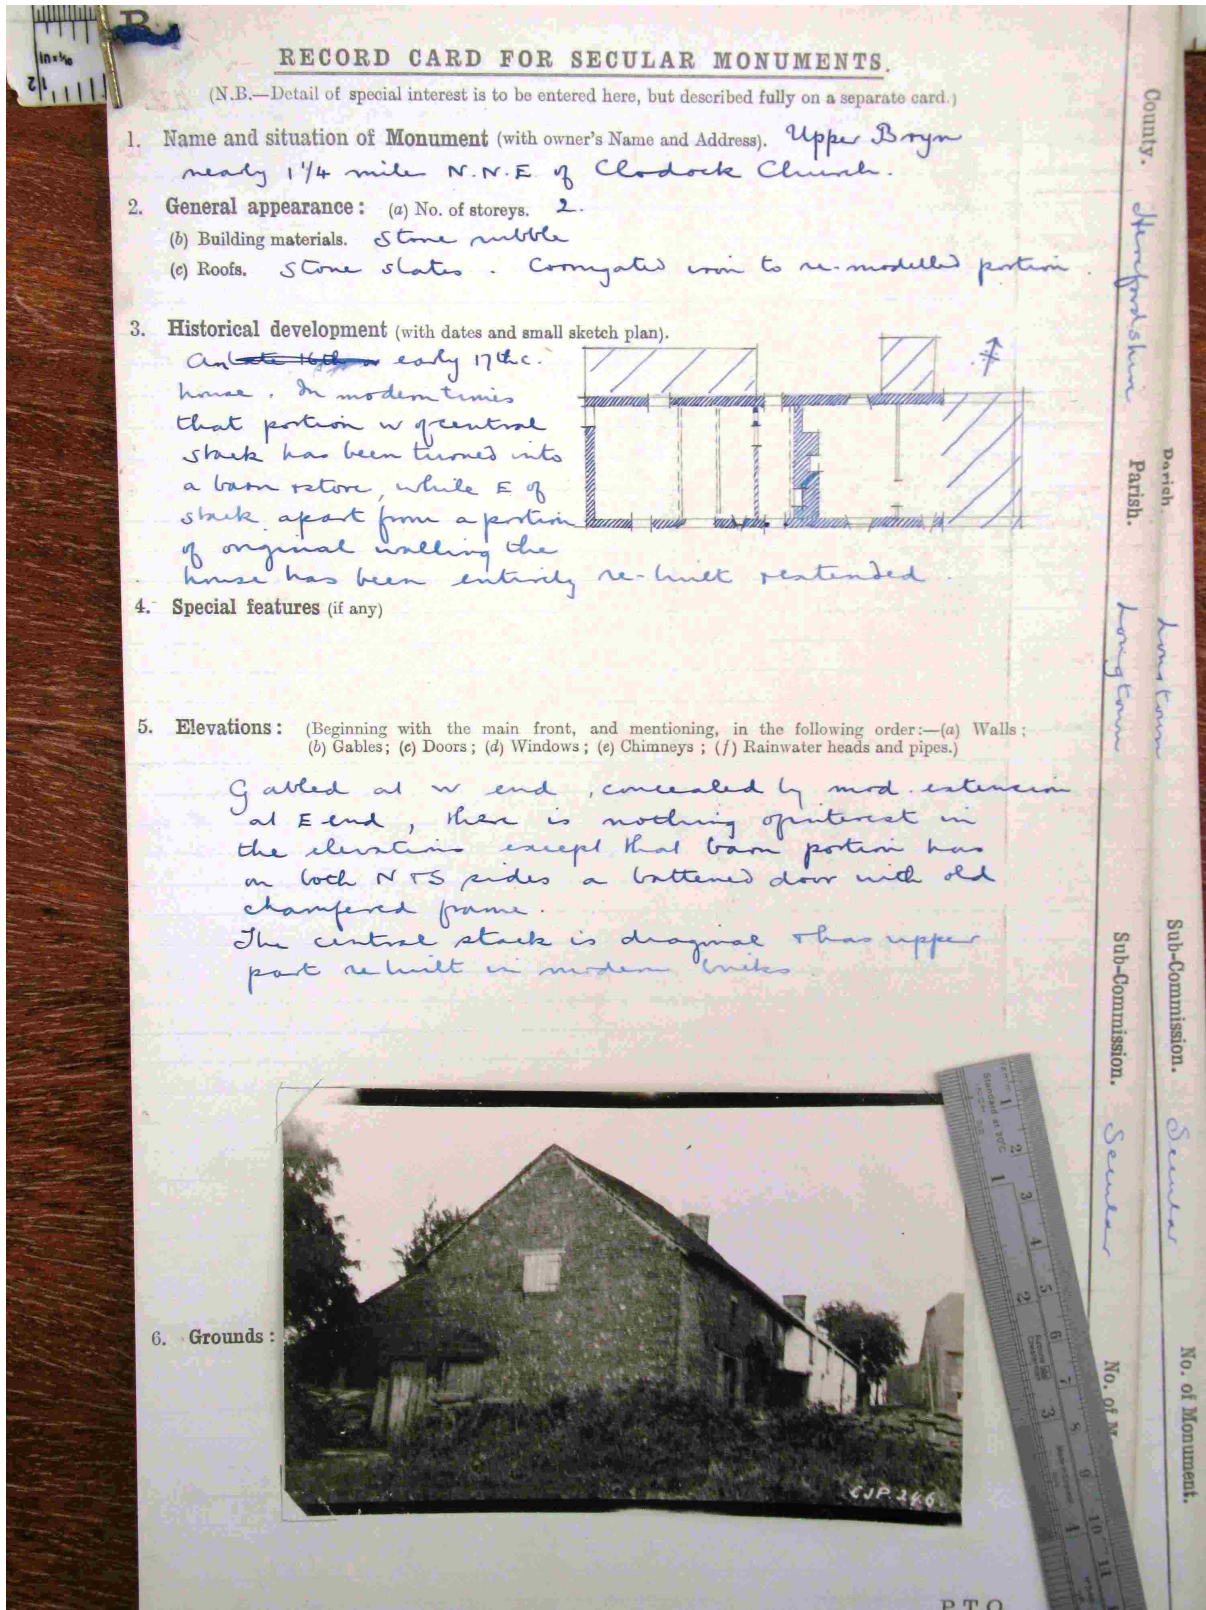 RECORD CARD FOR SECULAR MONUMENTS.
(N.B.—Detail of special interest is to be entered here, but described fully on a separate card.)
1. Name and situation of Monument (with owner's Name and Address). Upper Bryn
nearly 1 1/4 miles N.N.E of Clodock Church.
2. General appearance: (a) No. of storeys. 2.
(b) Building materials. Stone rubble
(c) Roofs. Stone slates. Corrugated iron to re-modelled portion.
3. Historical development (with dates and small sketch plan).
An late 16th or early 17th c.
house. In modern times
that portion W of central
stack has been turned into
a barn & store, while E of
stack apart from a portion
of original walling the
house has been entirely re-built & extended.
4. Special features (if any)
5. Elevations: (Beginning with the main front, and mentioning, in the following order:—(a) Walls;
(b) Gables; (c) Doors; (d) Windows; (e) Chimneys; (f) Rainwater heads and pipes.)
Gabled at W end, concealed by mod. extension
at E end, there is nothing of interest in
the elevations except that barn portion has
on both N & S sides a battened door with old
chamfered frame.
The central stack is & has upper
part rebuilt in modern bricks.
6. Grounds:
CJP.246
P.T.O
County. Herefordshire Parish. Longtown Sub-Commission. Secular No. of
Parish. Longtown Sub-Commission. Secular No. of Monument.